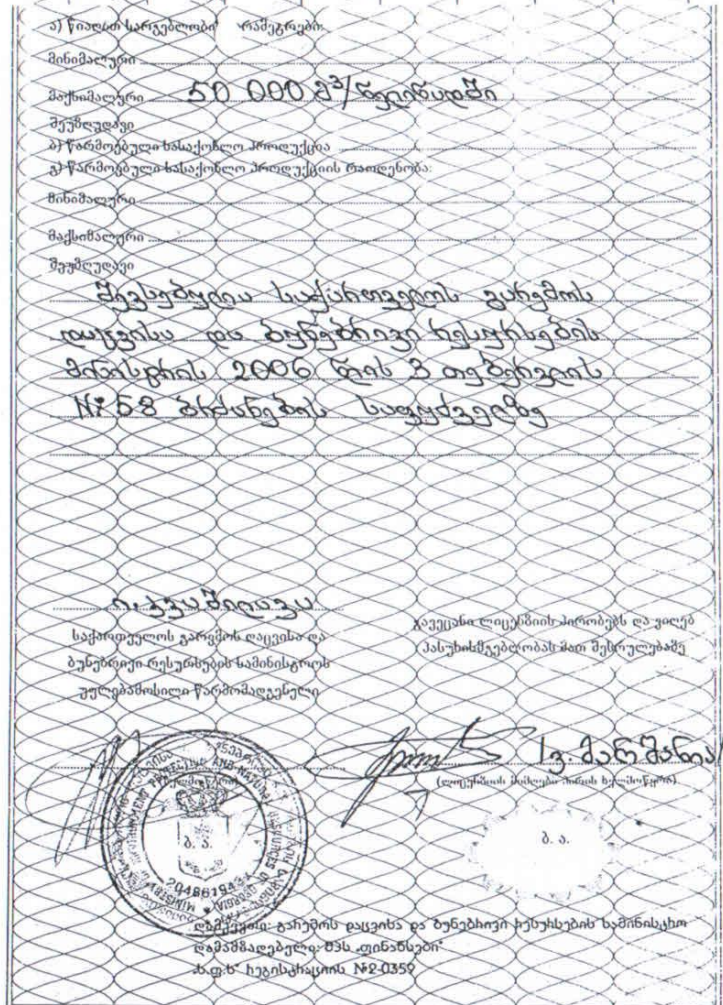 ა) წიაღით სარგებლობის რამეტრები:
მინიმალური
მაქსიმალური 50 000 მ³/წელიწადში
შეუზღუდავი
ბ) წარმოებული სასაქონლო პროდუქცია
გ) წარმოებული სასაქონლო პროდუქციის რაოდენობა:
მინიმალური
მაქსიმალური
შეუზღუდავი
შევსებულია საქართველოს გარემოს
დაცვისა და ბუნებრივი რესურსების
მინისტრის 2006 წლის 3 თებერვლის
№58 ბრძანების საფუძველზე
ი. კვაშილავა
საქართველოს გარემოს დაცვისა და
ბუნებრივი რესურსების სამინისტროს
უფლებამოსილი წარმომადგენელი
გავეცანი ლიცენზიის პირობებს და ვიღებ
პასუხისმგებლობას მათ შესრულებაზე
/გ. მარშანია/
(ლიცენზიის მიმღები პირის ხელმოწერა)
ბ. ა.
204861943
ბ. ა.
დამკვეთი: გარემოს დაცვისა და ბუნებრივი რესურსების სამინისტრო
დამამზადებელი: შპს „ფინანსები“
„ს.ფ.ს“ რეგისტრაციის №2-0359